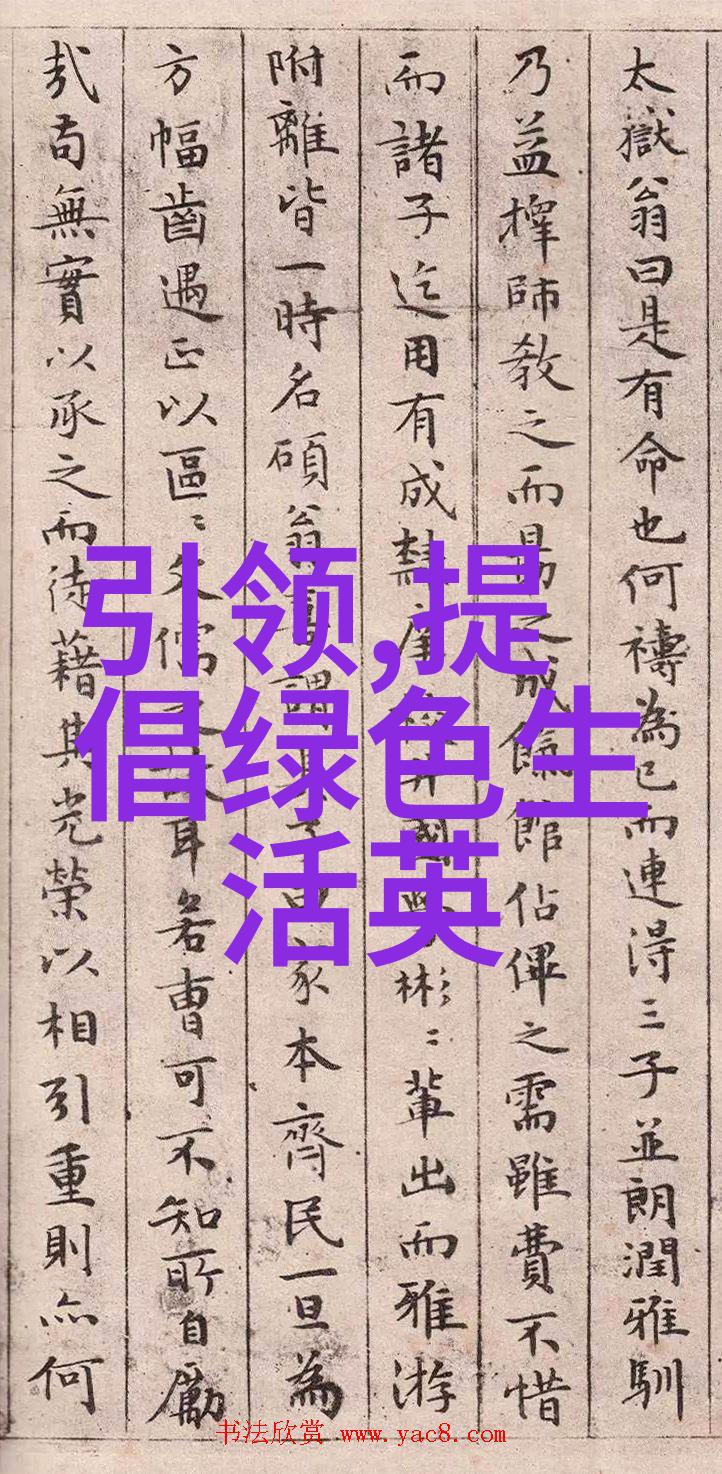 太嶽翁曰是有命也何禱為已而連得三子並朗潤雅馴
乃益擇師教之而 之 餼館佔俾之需雖費不惜
而諸子迄用有成 彬〻輩出而雅游
附離皆一時名碩翁喜謂其子曰家本齊民一旦為
方幅齒遇正以區〻文儒 耳若曹可不知所自勵
哉苟無實以承之而徒藉其光榮以相引重則亦何
引领,提
倡绿色生
活英
书法欣赏 www.yac8.com